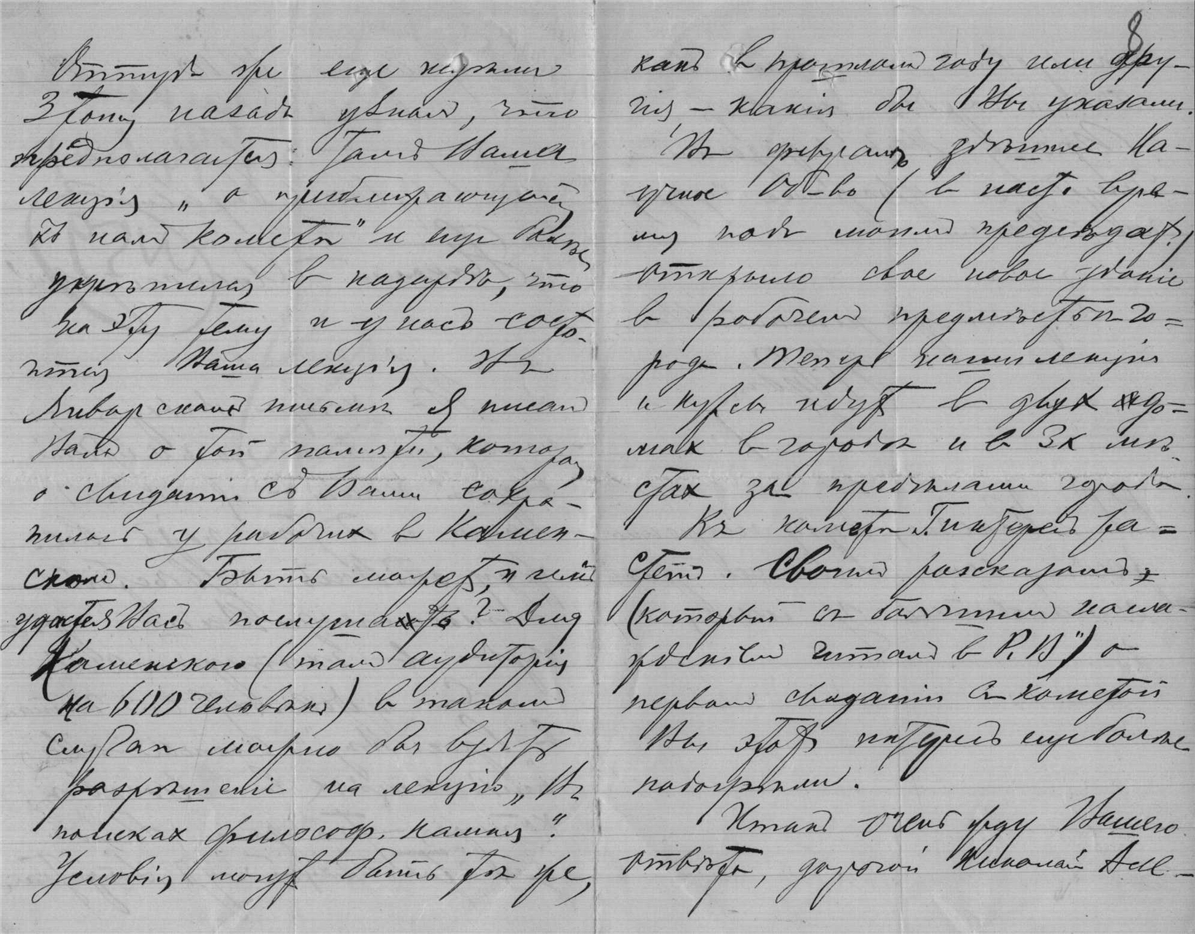 Оттуда же еще недели
3 тому назадъ узналъ, что
предполагается тамъ Ваша
лекція „о приближающейся
къ намъ кометѣ" и еще болѣе
укрѣпился в надеждѣ, что
на эту тему и у насъ состо-
ится Ваша лекція. Въ
Январскомъ письмѣ я писалъ
Вамъ о той памяти, которая
о свиданіи съ Вами сохра-
нилась у рабочих в Камен-
скомъ. Быть может, и имъ
удастся Васъ послушать? Для
Каменскаго (там аудиторія
на 600 человѣкъ) в таком
случаѣ можно бы взять
разрѣшеніе на лекцію „Въ
поисках философ. камня".
Условія могут быть тѣ же,
8
какъ в прошлом году или дру-
гія, – какія бы Вы указали.
Въ февралѣ здѣшнее На-
учное Об-во (в наст. вре-
мя подъ моимъ предсѣдат.)
открыло свое новое зданіе
в рабочем предмѣстьи го=
рода. Теперь наши лекціи
и курсы идут в двух до=
мах в городѣ и в 3х мѣ-
стах за предѣлами города.
Къ кометѣ интересъ ра=
стетъ. Своим разсказомъ
(который съ большим насла-
жденіем читалъ в Р. В") о
первом свиданіи съ кометой
Вы этотъ интересъ еще болѣе
подогрѣли.
Итакъ очень жду Вашего
отвѣта, дорогой Николай Але-